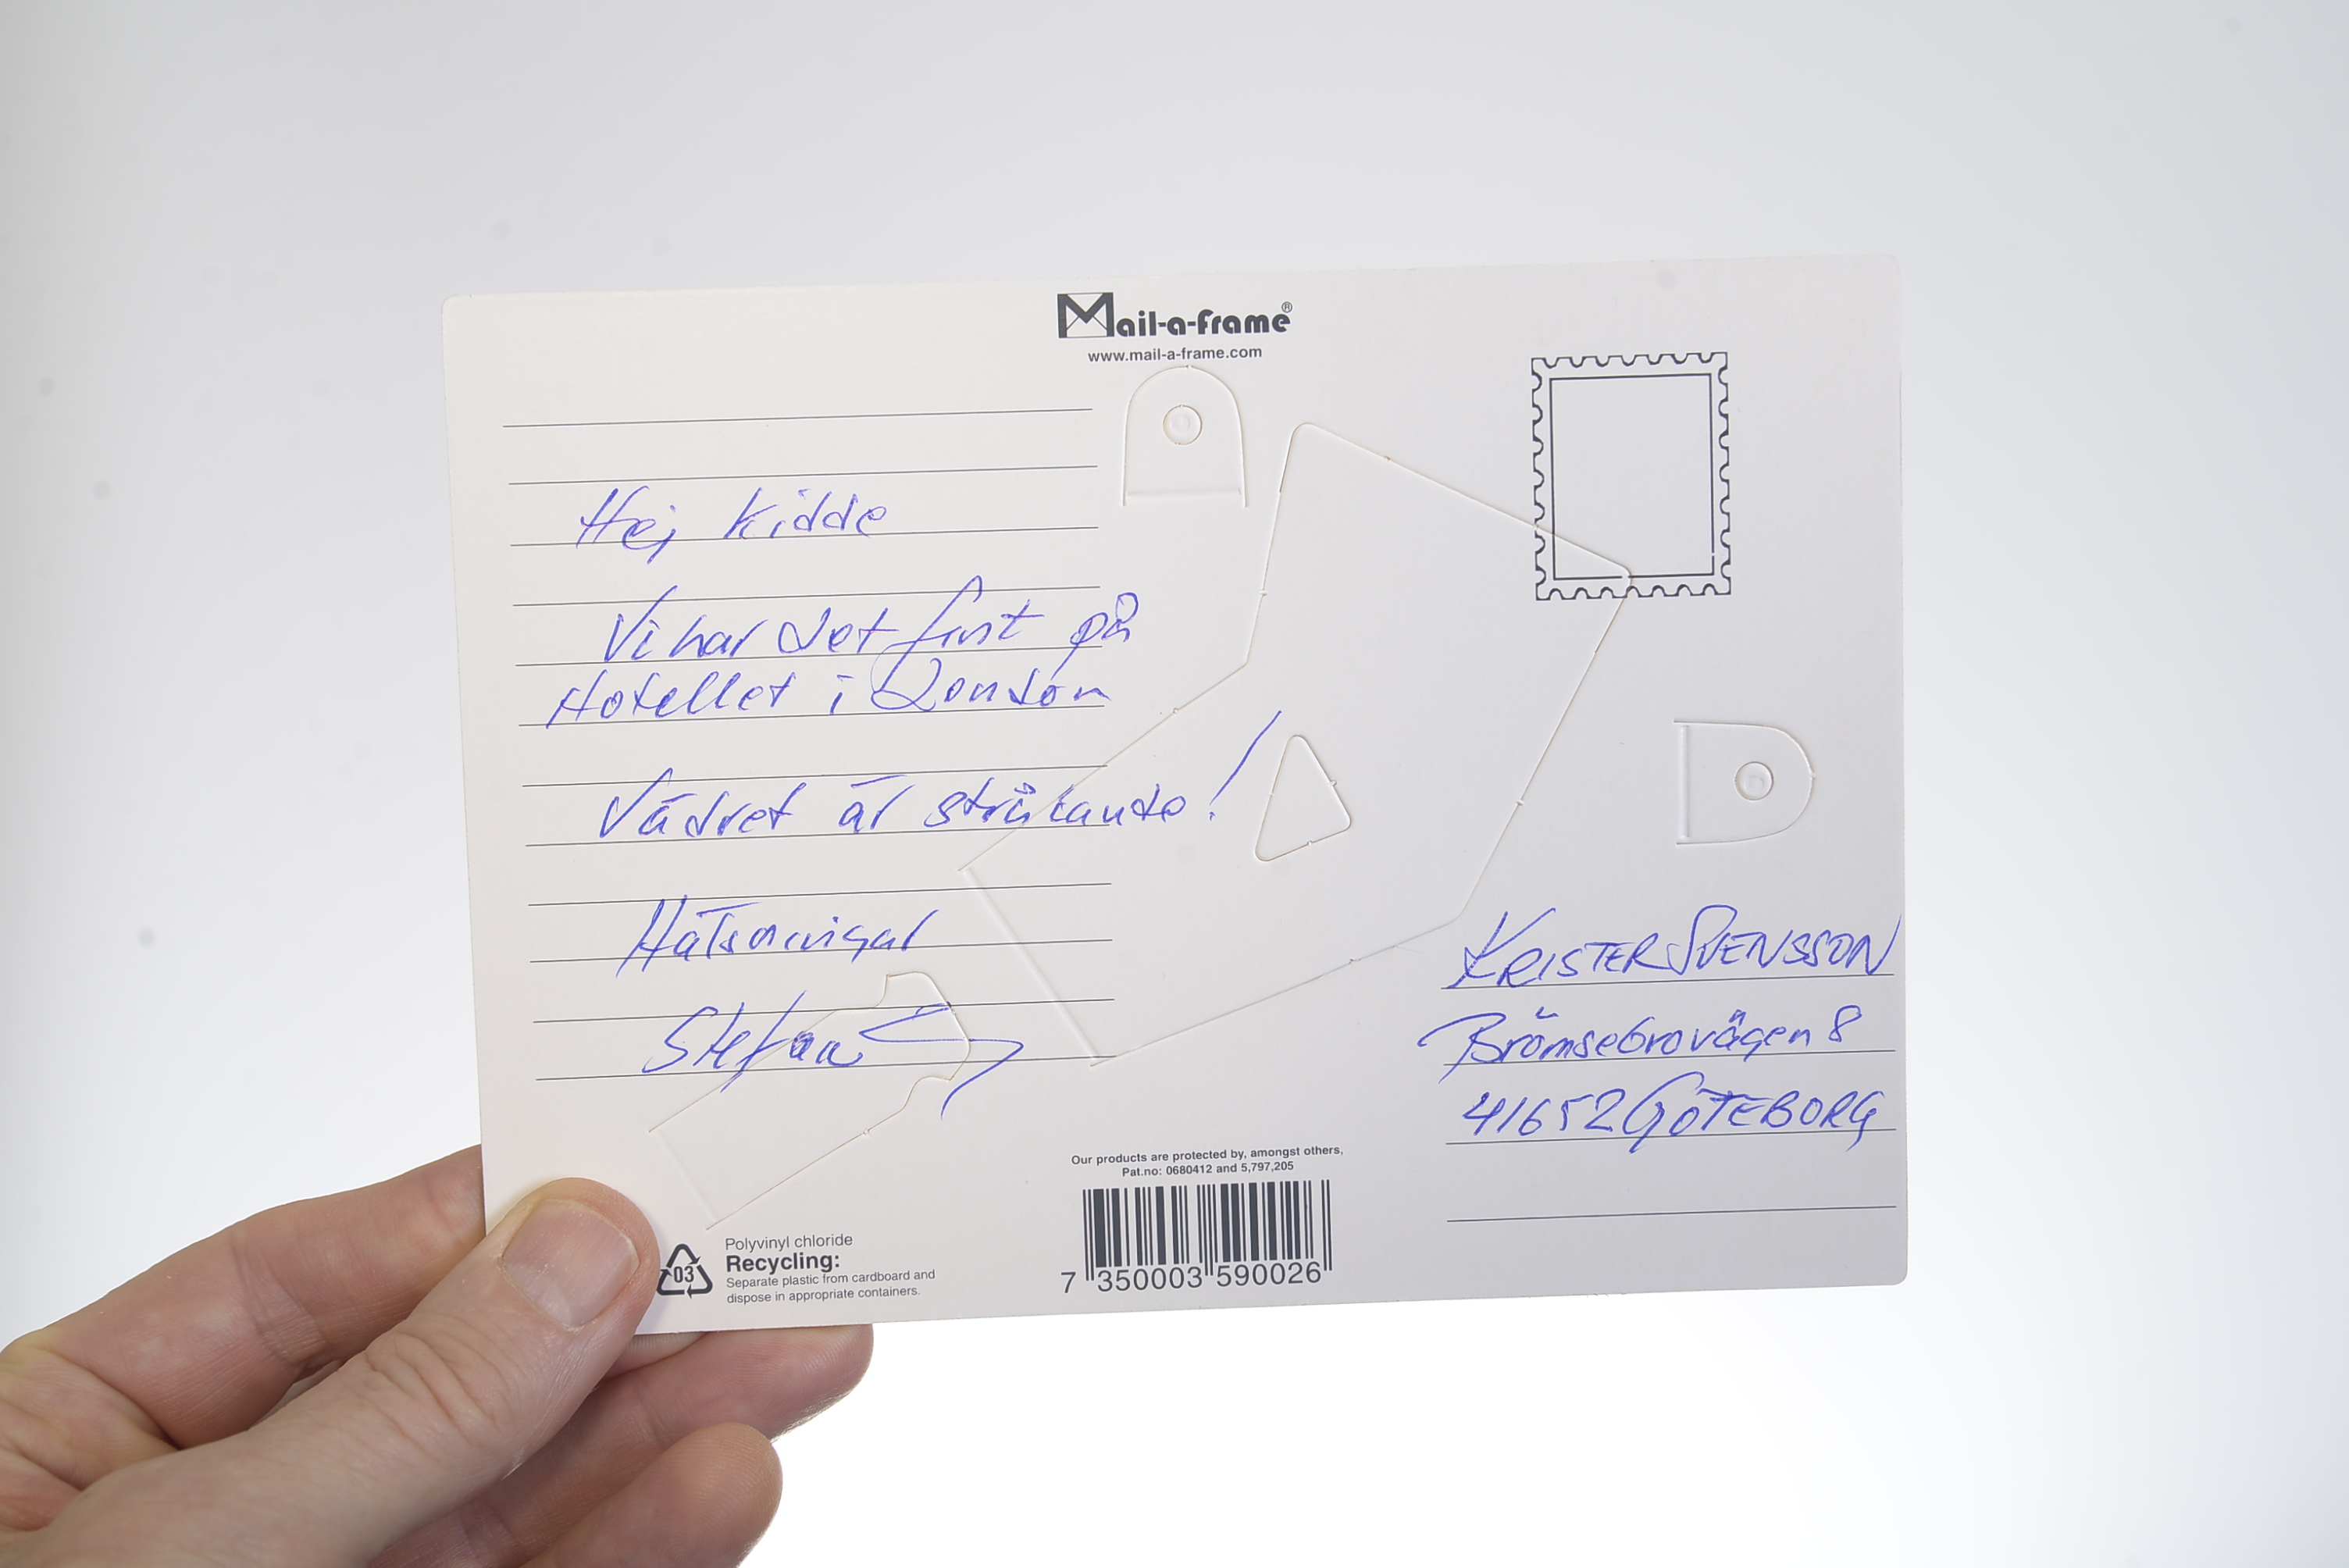 Mail-a-Frame®
www.mail-a-frame.com
Hej Kidde
Vi har det fint på
Hotellet i London
Vädret är strålande!
Hälsningar
Stefan
KRISTER SVENSSON
Brömsebrovägen 8
41652 GÖTEBORG
Our products are protected by, amongst others,
Pat.no: 0680412 and 5,797,205
7 350003 590026
03
Polyvinyl chloride
Recycling:
Separate plastic from cardboard and
dispose in appropriate containers.